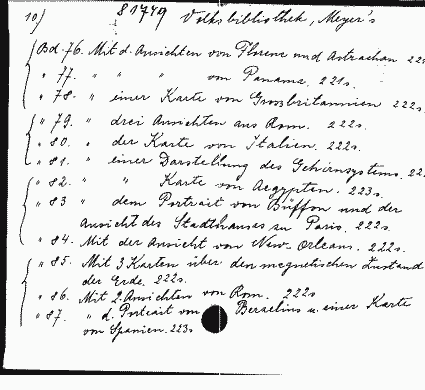 10) 81749 Volksbibliothek, Meyer's
Bd. 76. Mit d. Ansichten von Florenz und Astrachan 221
" 77. " " " von Panama. 221s.
" 78. " einer Karte von Grossbritannien 222s.
" 79. " drei Ansichten aus Rom. 222s.
" 80. " der Karte von Italien. 222s.
" 81. " einer Darstellung des Gehirnsystems. 22
" 82. " " Karte von Aegypten. 223s.
" 83 " dem Portrait von Büffon und der
Ansicht des Stadthauses zu Paris. 222s.
" 84. Mit der Ansicht von New-Orleans. 222s.
" 85. Mit 3 Karten über den magnetischen Zustand
der Erde. 222s.
" 86. Mit 2 Ansichten von Rom. 222s
" 87. " d. Portrait von Berzelius u. einer Karte
von Spanien. 223s